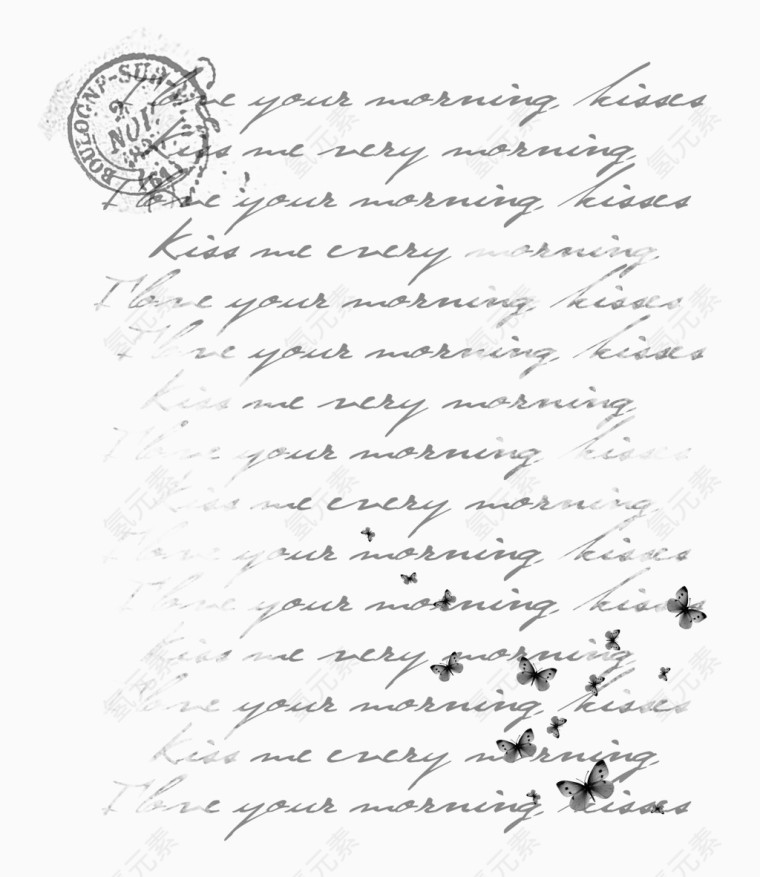 BOULOGNE-SUR-
NOV.
I love your morning, kisses
Kiss me very morning,
I love your morning, kisses
Kiss me every morning,
I love your morning, kisses
I love your morning, kisses
Kiss me very morning,
I love your morning, kisses
Kiss me every morning,
I love your morning, kisses
I love your morning, kisses
Kiss me very morning,
I love your morning, kisses
Kiss me every morning,
I love your morning, kisses
氢元素